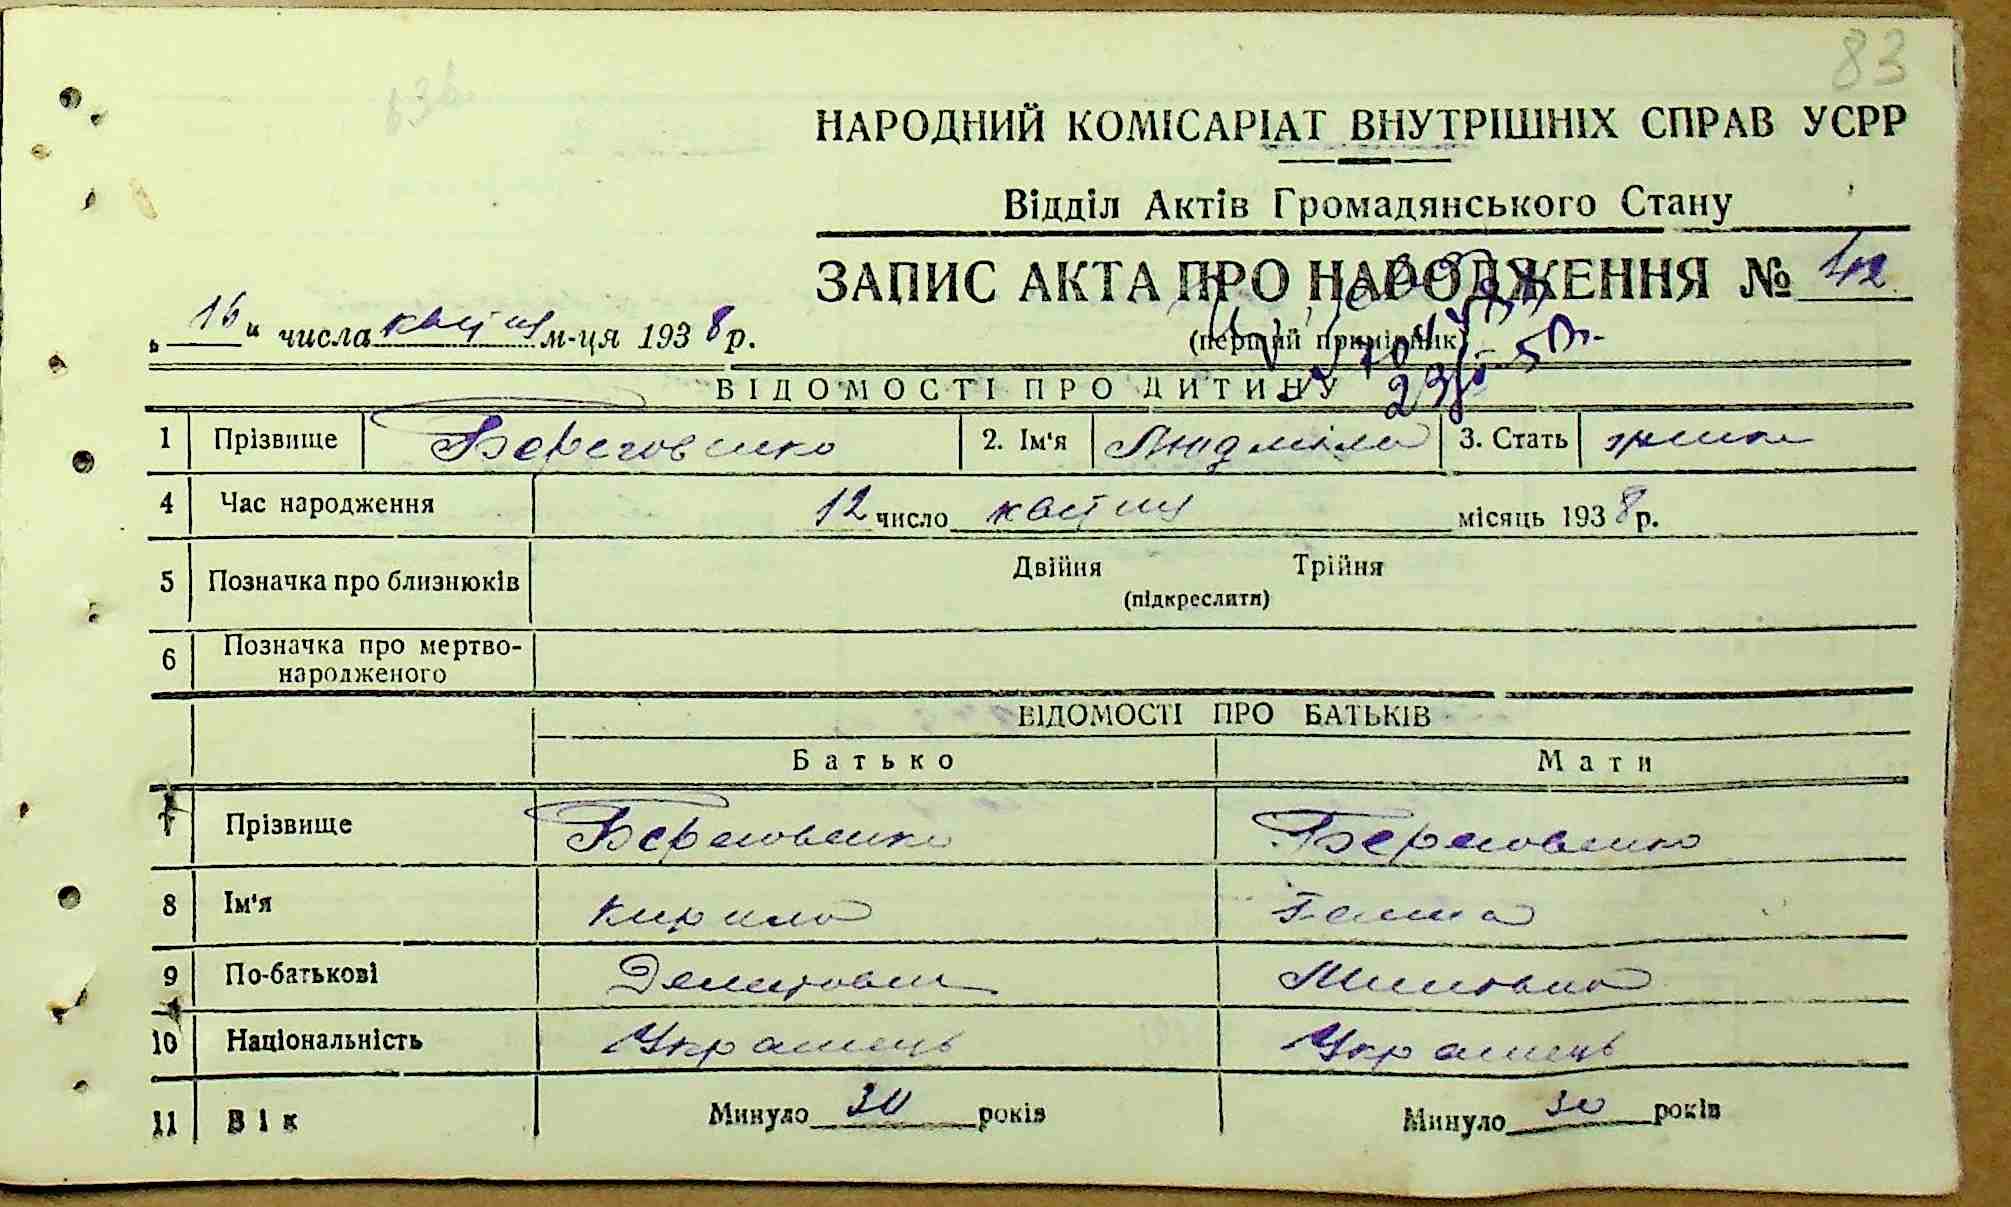 83
НАРОДНИЙ КОМІСАРІАТ ВНУТРІШНІХ СПРАВ УСРР
Відділ Актів Громадянського Стану
ЗАПИС АКТА ПРО НАРОДЖЕННЯ № 42
„ 16 " числа квітня м-ця 1938 р.
(перший примірник)
ВІДОМОСТІ ПРО ДИТИНУ
1 Прізвище Береговенко 2. Ім'я Людміла 3. Стать жіноча
4 Час народження 12 число квітня місяць 1938 р.
5 Позначка про близнюків Двійня Трійня
(підкреслити)
6 Позначка про мертво-
народженого
ВІДОМОСТІ ПРО БАТЬКІВ
Батько Мати
7 Прізвище Береговенко Береговенко
8 Ім'я Кирило Ганна
9 По-батькові
10 Національність Українець Українець
11 Вік Минуло 30 років Минуло 30 років